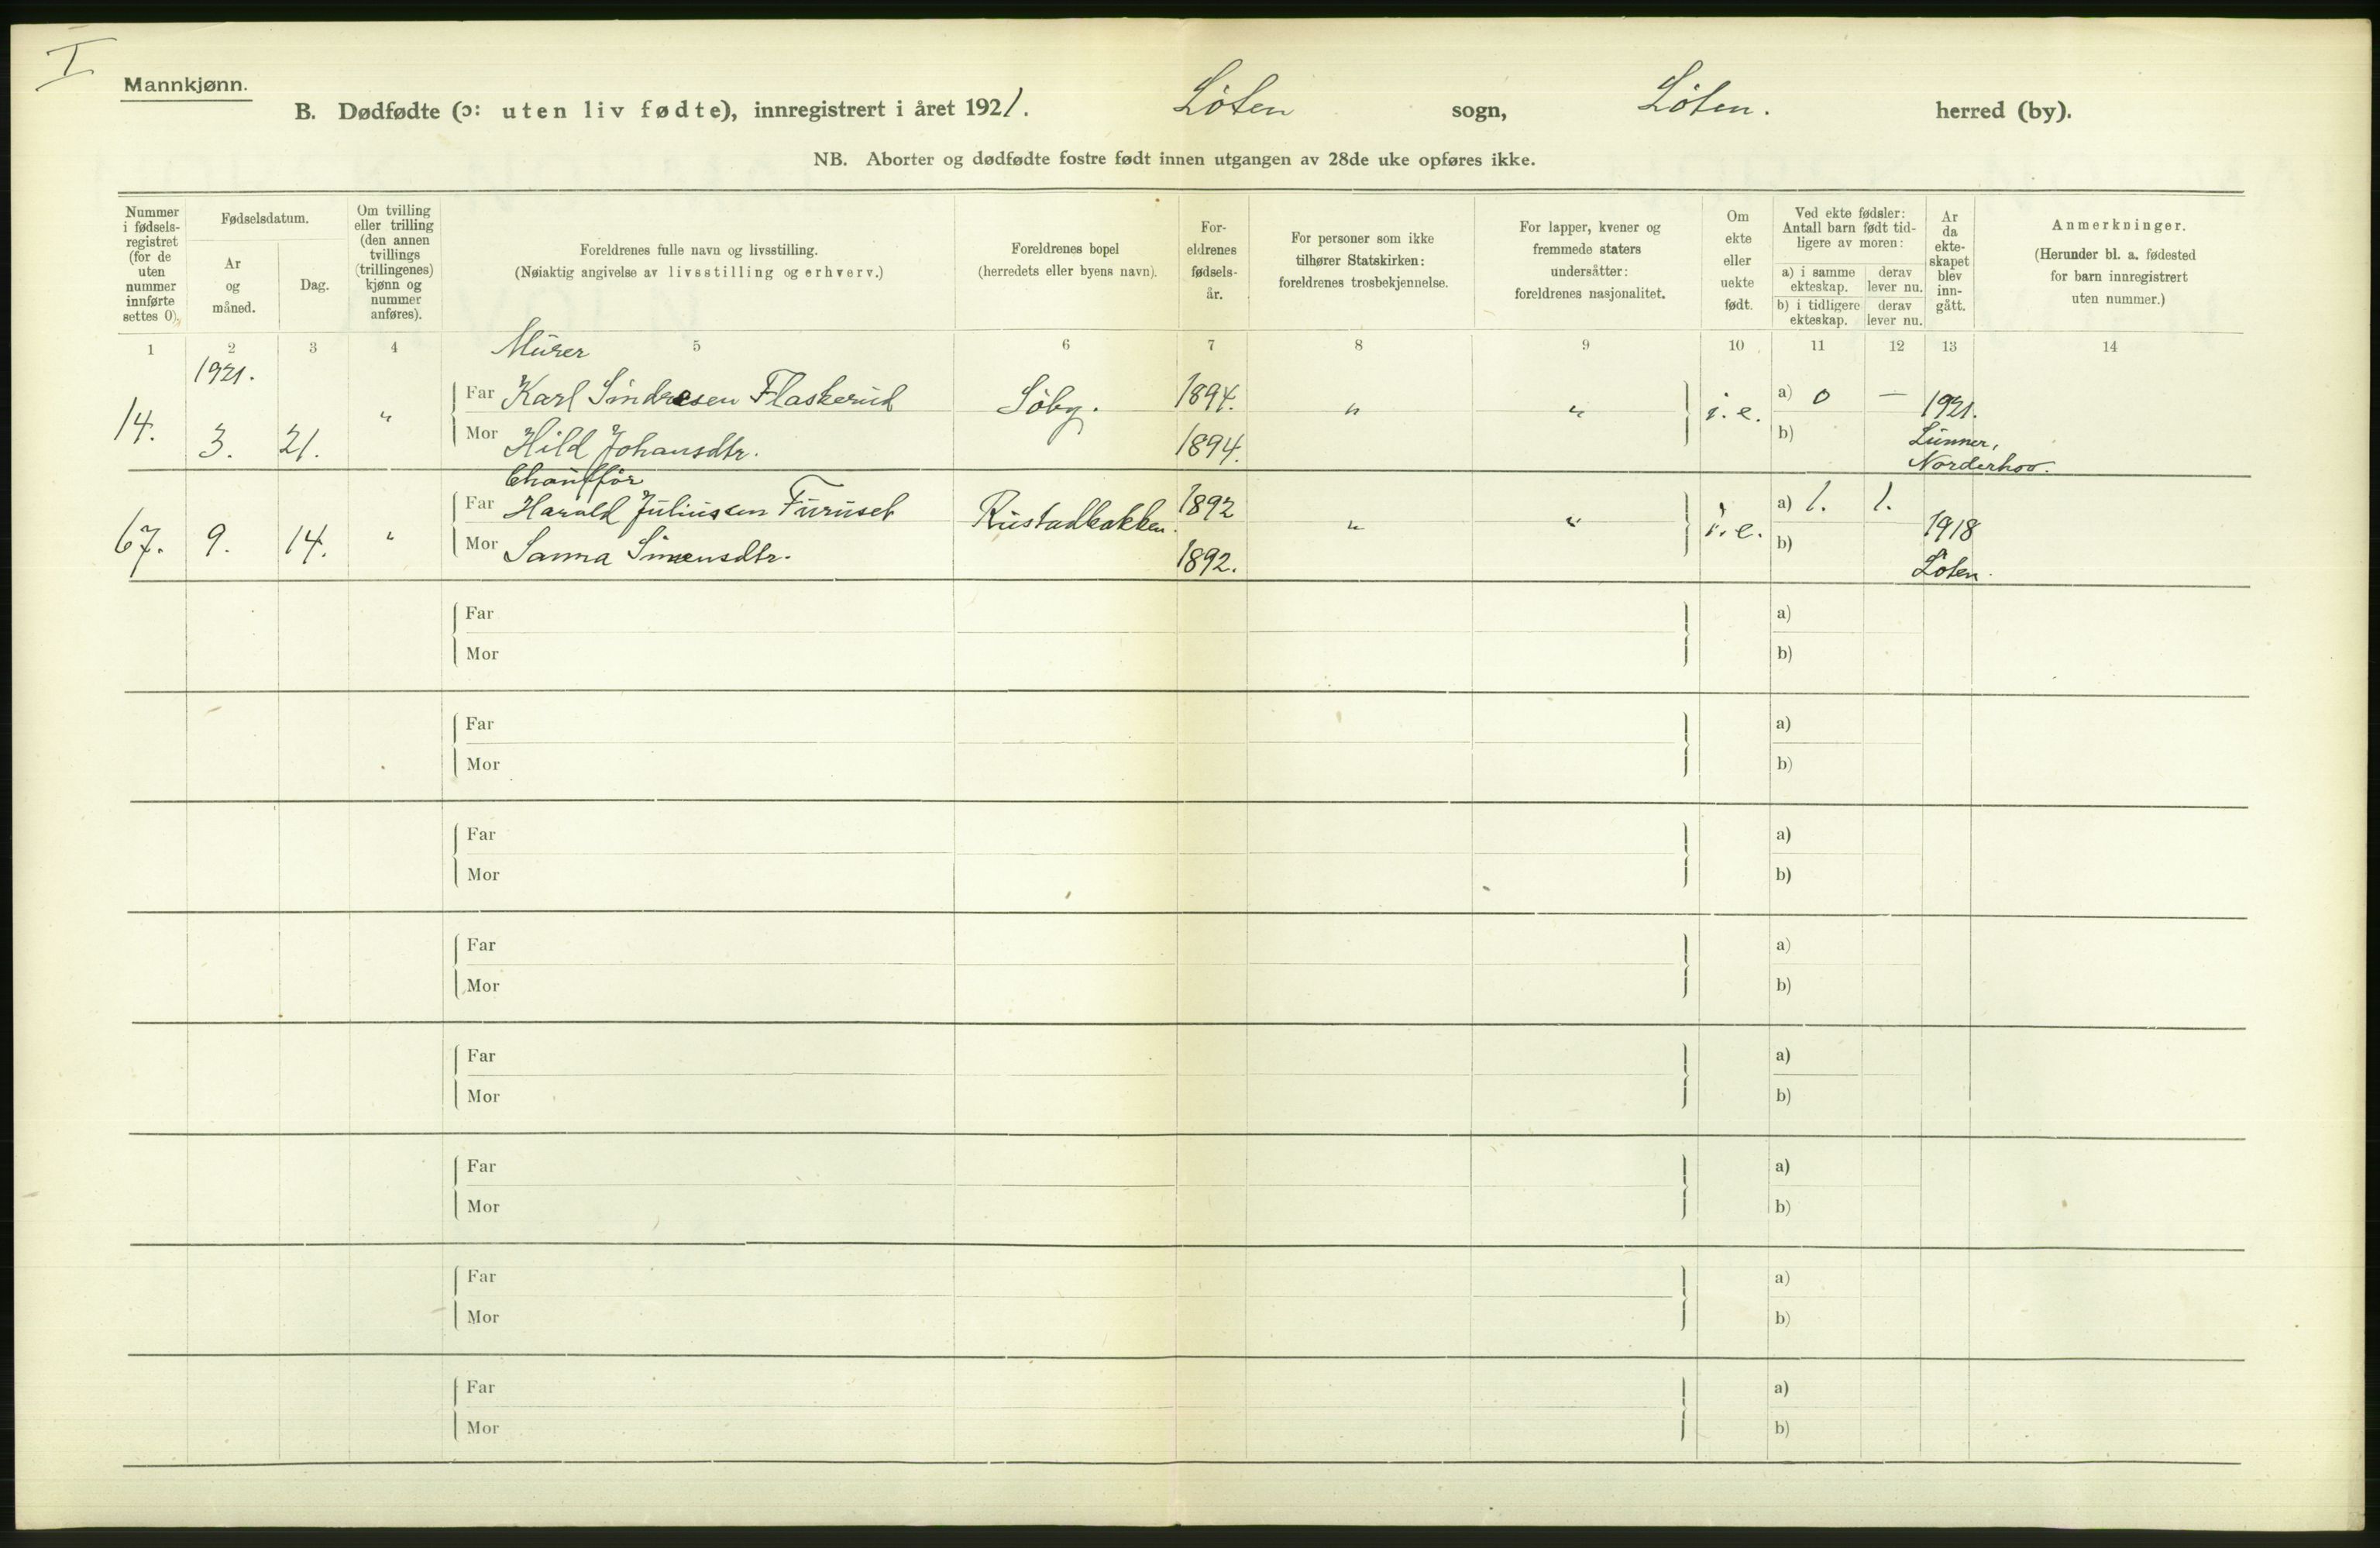 I
Mannkjønn.
B. Dødfødte (ɔ: uten liv fødte), innregistrert i året 1921. Löten sogn, Löten. herred (by).
NB. Aborter og dødfødte fostre født innen utgangen av 28de uke opføres ikke.
Nummer i fødsels-registret (for de uten nummer innførte settes 0).
Fødselsdatum.
Ar og måned.
Dag.
Om tvilling eller trilling (den annen tvillings (trillingenes) kjønn og nummer anføres).
Foreldrenes fulle navn og livsstilling.
(Nøiaktig angivelse av livsstilling og erhverv.)
Foreldrenes bopel
(herredets eller byens navn).
For-eldrenes fødsels-år.
For personer som ikke tilhører Statskirken: foreldrenes trosbekjennelse.
For lapper, kvener og fremmede staters undersåtter: foreldrenes nasjonalitet.
Om ekte eller uekte født.
Ved ekte fødsler: Antall barn født tid-ligere av moren:
a) i samme ekteskap.
derav lever nu.
b) i tidligere ekteskap.
derav lever nu.
Ar da ekte-skapet blev inn-gått.
Anmerkninger.
(Herunder bl. a. fødested for barn innregistrert uten nummer.)
1 2 3 4 5 6 7 8 9 10 11 12 13 14
1921.
Murer
14. 3. 21. " Far Karl Sindresen Flaskerud Söby. 1894. " " i. e. a) 0 — 1921.
Mor Hild Johansdtr. 1894. b) Lunner,
Norderhov.
Chaufför
67. 9. 14. " Far Harald Juliussen Furuset Rustadbakken. 1892 " " i. e. a) 1. 1. 1918
Mor Sanna Simensdtr. 1892. b) Löten.
Far a)
Mor b)
Far a)
Mor b)
Far a)
Mor b)
Far a)
Mor b)
Far a)
Mor b)
Far a)
Mor b)
Far a)
Mor b)
Far a)
Mor b)